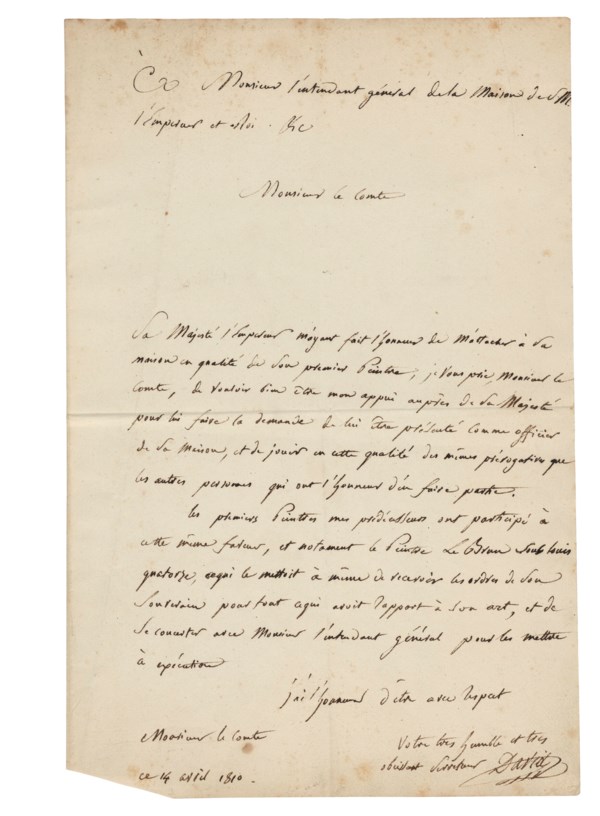 À Monsieur l'intendant général de la Maison de S M
l'Empereur et Roi . &c
Monsieur le Comte
Sa Majesté l'Empereur m'ayant fait l'honneur de m'attacher à sa
maison en qualité de son premier Peintre, je vous prie Monsieur le
Comte, de vouloir bien être mon appui auprès de Sa Majesté
pour lui faire la demande de lui être présenté comme officier
de sa Maison, et de jouir en cette qualité des mêmes prérogatives que
les autres personnes qui ont l'honneur d'en faire partie.
Les premiers Peintres mes prédécesseurs ont participé à
cette même faveur, et notamment le Peintre Le Brun sous louis
quatorze, cequi le mettoit à même de recevoir les ordres de son
Souverain pour tout cequi avoit rapport à son art, et de
se concerter avec Monsieur l'intendant général pour les mettre
à exécution
j'ai l'honneur d'être avec respect
Monsieur le Comte
Votre très humble et très
obéissant serviteur David
ce 14 avril 1810.